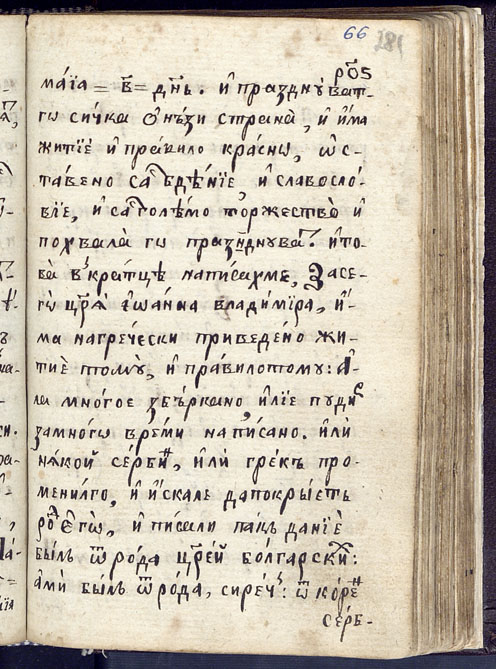 66
281
роѕ
маїа = в҃ = днь. и празднꙋват-
гѡ сичка ѻнѣзи страна, и има
житїе и правило красны, ѡс-
тавено са бдѣнїе, и славосло-
вїе, и са големо торжество и
похвала гѡ празнднува. и то-
ва вкратцѣ написахме, Засе-
гѡ цр҃ѧ їѡанна владимїра, и-
ма нагречески приведено жи-
тиѐ тому, и правилотому: А-
ла многое збъркано, илїе пуди
замногѡ време написано. или
някой серби, или грекъ про-
менилго, и искале дапокрыетъ
рѡ егѡ, и писали пакъ данїе
былъ ѿ рода цр҃ей болгарски:
ами былъ ѿ рода, сиреч: ѿ коре
серб-